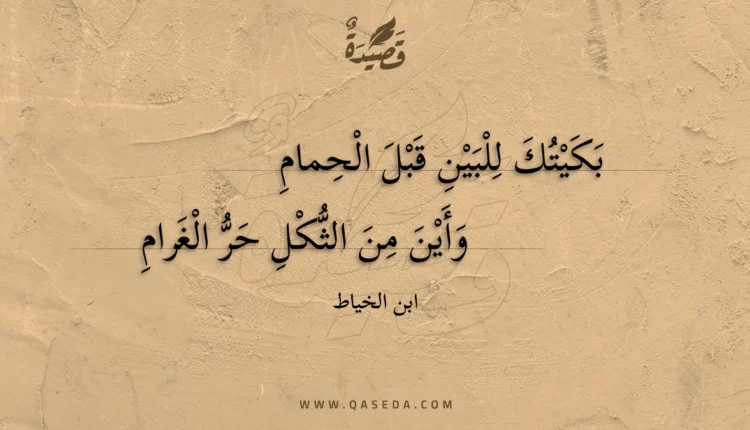 قَصِيدَةٌ
بَكَيْتُكَ لِلْبَيْنِ قَبْلَ الْحِمامِ
وَأَيْنَ مِنَ الثُّكْلِ حَرُّ الْغَرامِ
ابن الخياط
WWW.QASEDA.COM